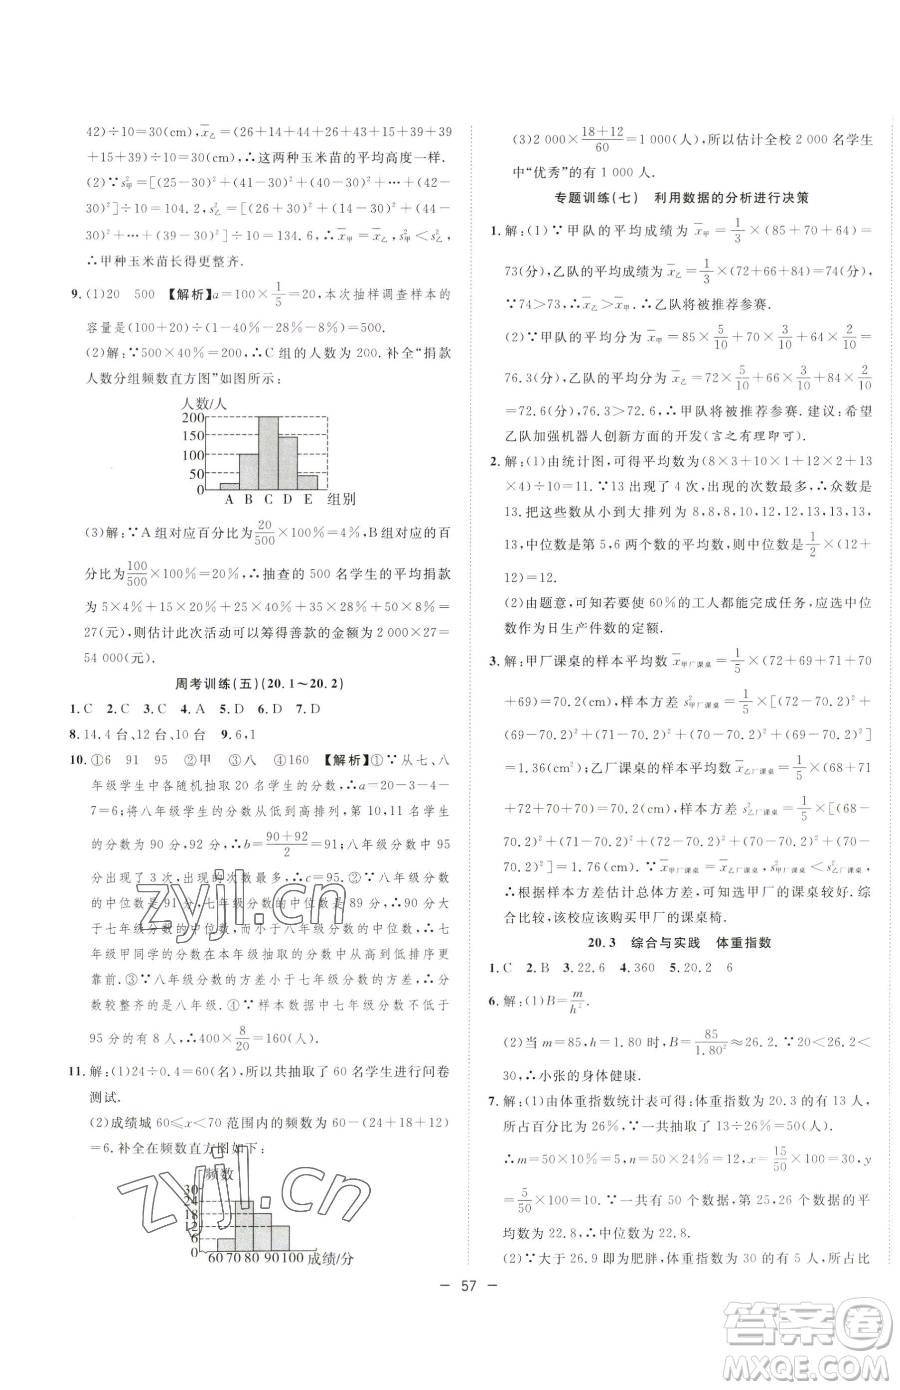 42)÷10=30(cm),x̄乙=(26+14+26+44+26+14+
44+39+36+39)÷10=30(cm).
15+44+39)÷10=30(cm),∴这两种玉米苗的平均高度一样.
(2)∵s²甲=[(25-30)²+(40-30)²+…+(42-
30)²]÷10=104.2,s²乙=[(26-30)²+(14-30)²+…+
(39-30)²]÷10=134.6,∴x̄甲=x̄乙,s²甲<s²乙,
∴甲种玉米苗长得更整齐.
9.(1)20 500 【解析】a=100×1/5=20,本次抽样调查样本的
容量是(100+20)÷(1-40%-28%-8%)=500.
(2)解:∵500×40%=200,∴C组的人数为200.补全“捐款
人数分组频数直方图”如图所示:
人数/人
200
150
100
50
0
A B C D E 组别
(3)解:∵A组对应百分比为20/500×100%=4%,B组对应的百
分比为100/500×100%=20%,∴抽查的500名学生的平均捐款
为5×4%+15×20%+25×40%+35×28%+45×8%=
27(元),则估计此次活动可以筹得善款的金额为2 000×27=
54 000(元).
周考训练(五)(20.1～20.2)
1.C 2.C 3.C 4.A 5.D 6.D 7.D
8.14.4台,12台,10台 9.6,1
10.①6 91 95 ②甲 ③八 ④160 【解析】①∵从七、八
年级学生中各随机抽取20名学生的分数,∴a=20-3-4
-7=6;将八年级学生的分数从低到高排列,第10,11名学生
的分数分别为90,92,∴b=(90+92)/2=91;八年级分数中95
分出现的次数最多,∴c=95.②∵八年级分数
的中位数是91分,七年级分数的中位数是89分,∴90分大
于七年级分数的中位数,而小于八年级分数的中位数,∴在七
年级甲同学的分数在本年级抽取的分数中从高到低排序更
靠前.③∵八年级分数的方差小于七年级分数的方差,∴分
数较整齐的是八年级.④∵样本数据中七年级分数不低于
95分的有8人,∴400×8/20=160(人).
11.解:(1)24÷0.4=60(名),所以共抽取了60名学生进行问卷
测试.
(2)成绩城60≤x<70范围内的频数为60-(24+18+12)
=6.补全在频数直方图如下:
频数
30
24
18
12
6
0
60 70 80 90 100 成绩/分
(3)2 000×(18+12)/60=1 000(人),所以估计全校2 000名学生
中“优秀”的有1 000人.
专题训练(七) 利用数据的分析进行决策
1.解:(1)∵甲队的平均成绩为x̄甲=1/3×(85+70+64)=
73(分),乙队的平均成绩为x̄乙=1/3×(72+76+74)=74(分).
∵74>73,∴x̄乙>x̄甲,∴乙队将被推荐参赛.
(2)∵甲队的平均分为x̄甲=85×5/10+70×3/10+64×2/10=
76.3(分),乙队的平均分为x̄乙=72×5/10+76×3/10+74×2/10
=72.6(分),76.3>72.6,∴甲队将被推荐参赛.建议:希望
乙队加强机器人创新方面的开发(言之有理即可).
2.解:(1)由统计图,可得平均数为(8×3+12×2+10×2+13
×4)÷10=12.∵13出现了4次,次数最多,∴众数是
13.把这些数从小到大排列为8,8,8,10,12,12,13,13,13,
13,中位数是第5,6两个数的平均数,则中位数是1/2×(12+
12)=12.
(2)由题意,可知若要使60%的工人都能完成任务,应选中位
数作为日生产件数的定额.
3.解:甲厂课桌的样本平均数x̄甲厂课桌=1/5×(72+69+71+69
+70)=70.2(cm),样本方差s²甲厂课桌=1/5×[(72-70.2)²+
(69-70.2)²+(71-70.2)²+(69-70.2)²+(70-70.2)²]
=1.36(cm²);乙厂课桌的样本平均数x̄乙厂课桌=1/5×(68+71
+72+70+70)=70.2(cm),样本方差s²乙厂课桌=1/5×[(68-
70.2)²+(71-70.2)²+(72-70.2)²+(70-70.2)²+(70-
70.2)²]=1.76(cm²).∵x̄甲厂课桌=x̄乙厂课桌,s²甲厂课桌<s²乙厂课桌,
∴根据样本方差估计总体方差,可知甲厂的课桌较好.综
合比较,该校应该购买甲厂的课桌椅.
20.3 综合与实践 体重指数
1.C 2.B 3.22.6 4.360 5.20.2 6
6.解:(1)B=m/h².
(2)当m=85,h=1.80时,B=85/1.80²≈26.2.∵20<26.2<
30,∴小张的身体健康.
7.解:(1)由体重指数统计表可得:体重指数为20.3的有13人,
所占百分比为26%,∴一共抽取了13÷26%=50(人).
∴m=50×10%=5,n=50-15-13-5-5=12,x=15/50×100%=30%,y=
5/50×100%=10%.∵一共有50个数据,第25和第26个数据的平
均数为22.8,∴中位数为22.8.
(2)∵大于26.9即为肥胖,体重指数为30的有5人,所占比
— 57 —
zyjl.cn
zyjl.cn
答案圈
MXQE.COM